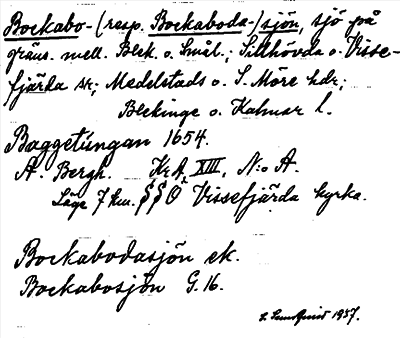 Bockabo- (resp. Bockaboda-) sjön, sjö på
gräns. mell. Blek. o. Smål.; Sillhövda o. Visse-
fjärda sk; Medelstads o. S. Möre hdr;
Blekinge o. Kalmar l.
Baggetungan 1654.
A. Bergh. KrA XIII, N:o A.
Läge 7 km. SSO Vissefjärda kyrka.
Bockabodasjön ek.
Bockabosjön G. 16.
1957.